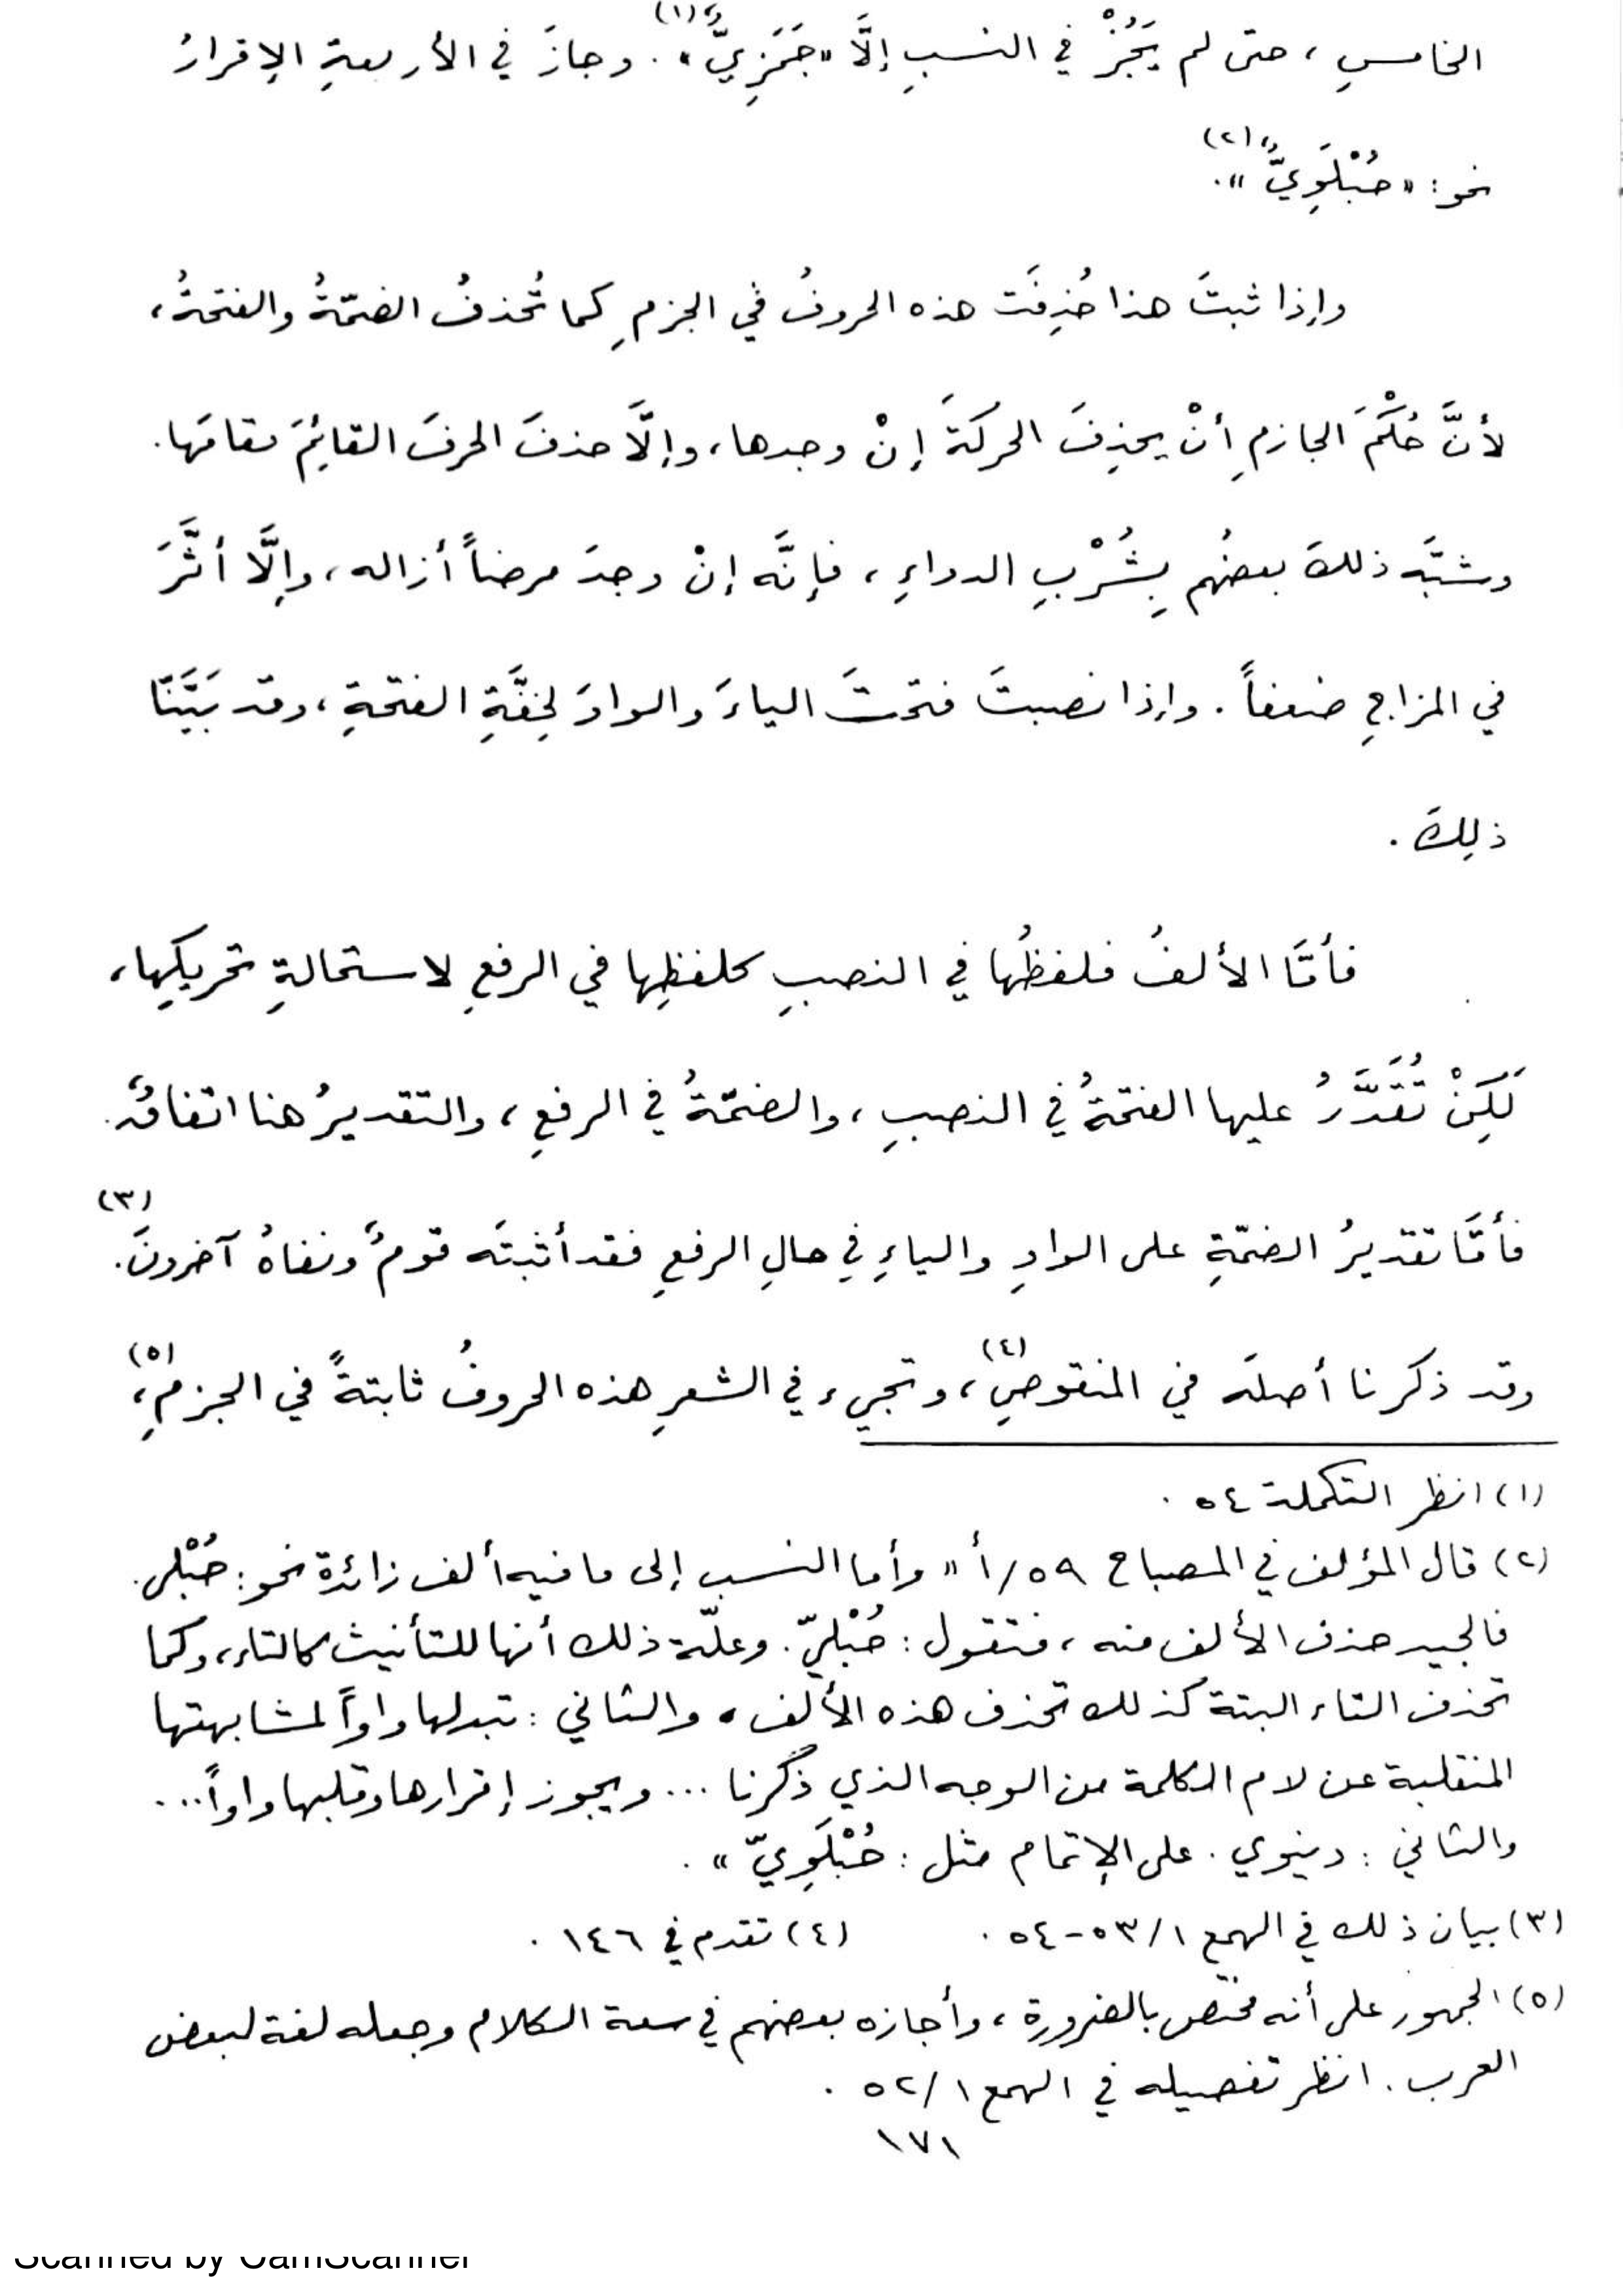 الخامسِ ، حتى لم يَجُزْ في النسبِ إلَّا «جَمَزِيٌّ»(١). وجازَ في الأربعةِ الإقرارُ
نحو: «حُبْلَوِيٌّ»(٢).
وإذا ثبتَ هذا حُذِفَت هذه الحروفُ في الجزمِ كما تُحذفُ الضمّةُ والفتحةُ،
لأنَّ حُكْمَ الجازمِ أنْ يحذِفَ الحركةَ إنْ وجدها، وإلَّا حذفَ الحرفَ القائِمَ مقامَها.
وشبَّه ذلكَ بعضُهم بِشُرْبِ الدواءِ ، فإنَّه إنْ وجدَ مرضاً أزاله، وإلَّا أثَّرَ
في المزاجِ ضعفاً . وإذا نصبتَ فتحتَ الياءَ والواوَ لِخِفَّةِ الفتحةِ ، وقد بَيَّنَّا
ذلِكَ .
فأمَّا الألفُ فلفظُها في النصبِ كلفظِها في الرفعِ لاستحالةِ تحريكِها،
لَكِنْ تُقَدَّرُ عليها الفتحةُ في النصبِ ، والضمّةُ في الرفعِ ، والتقديرُ هنا اتفاقٌ.
فأمَّا تقديرُ الضمّةِ على الواوِ والياءِ في حالِ الرفعِ فقد أثبتَه قومٌ ونفاهُ آخرونَ(٣).
وقد ذكرنا أصلَه في المنقوصِ(٤)، وتجيء في الشعرِ هذه الحروفُ ثابتةً في الجزمِ(٥)،
(١) انظر التكملة ٥٤ .
(٢) قال المؤلف في المصباح ٥٩/أ « وأما النسب إلى ما فيه ألف زائدة نحو: حُبْلى.
فالجيد حذف الألف منه ، فتقول : حُبْليّ . وعلّة ذلك أنها للتأنيث كالتاء، وكما
تحذف التاء البتة كذلك تحذف هذه الألف . والثاني : تبدلها واواً لمشابهتها
المنقلبة عن لام الكلمة من الوجه الذي ذكرنا ... ويجوز إقرارها وقلبها واواً ...
والثاني : دنيوي . على الإتمام مثل : حُبْلَوِيّ » .
(٣) بيان ذلك في الهمع ١/٥٣-٥٤ . (٤) تقدم في ١٤٦ .
(٥) الجمهور على أنه مختص بالضرورة ، وأجازه بعضهم في سعة الكلام وجعله لغة لبعض
العرب . انظر تفصيله في الهمع ١/٥٢ .
١٧١
Scanned by CamScanner